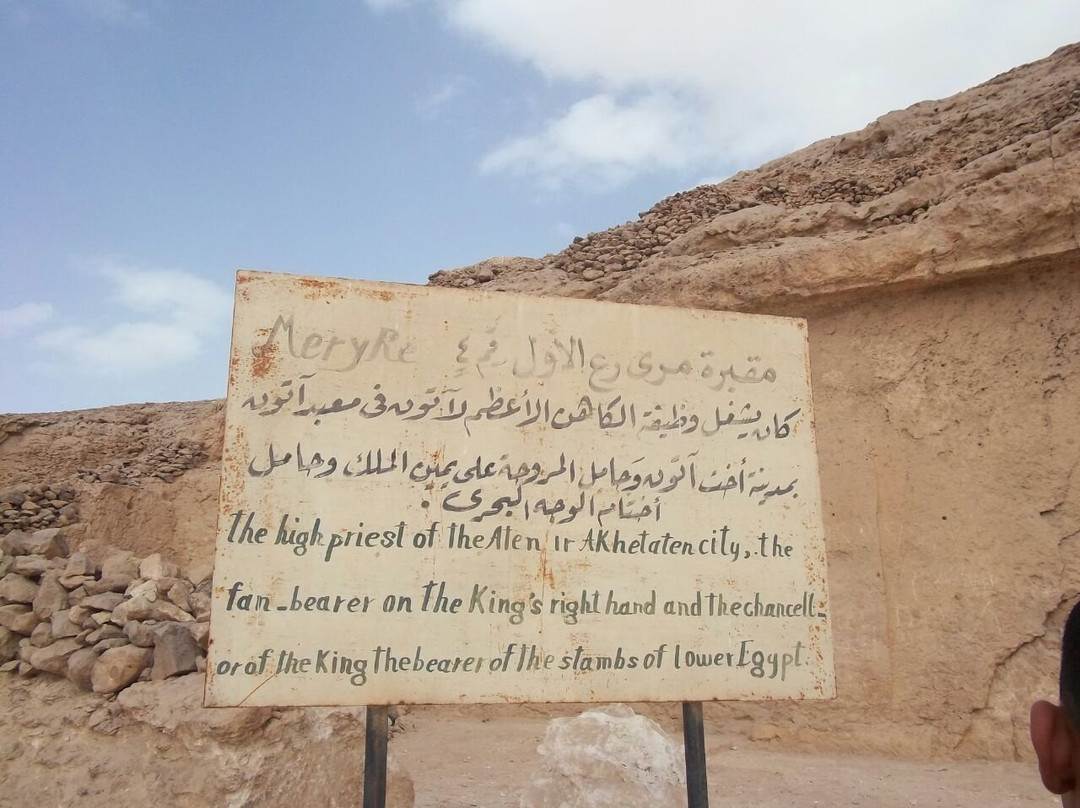 MeryRe مقبرة مرى رع الأول رقم ٤
كان يشغل وظيفة الكاهن الأعظم لآتون فى معبد آتون
بمدينة أخت آتون وحامل المروحة على يمين الملك وحامل
أختام الوجه البحرى .
the high priest of the Aten ir AKhetaten city, the
fan_bearer on the King's right hand and the chancell-
or of the King the bearer of the stambs of lower Egypt.